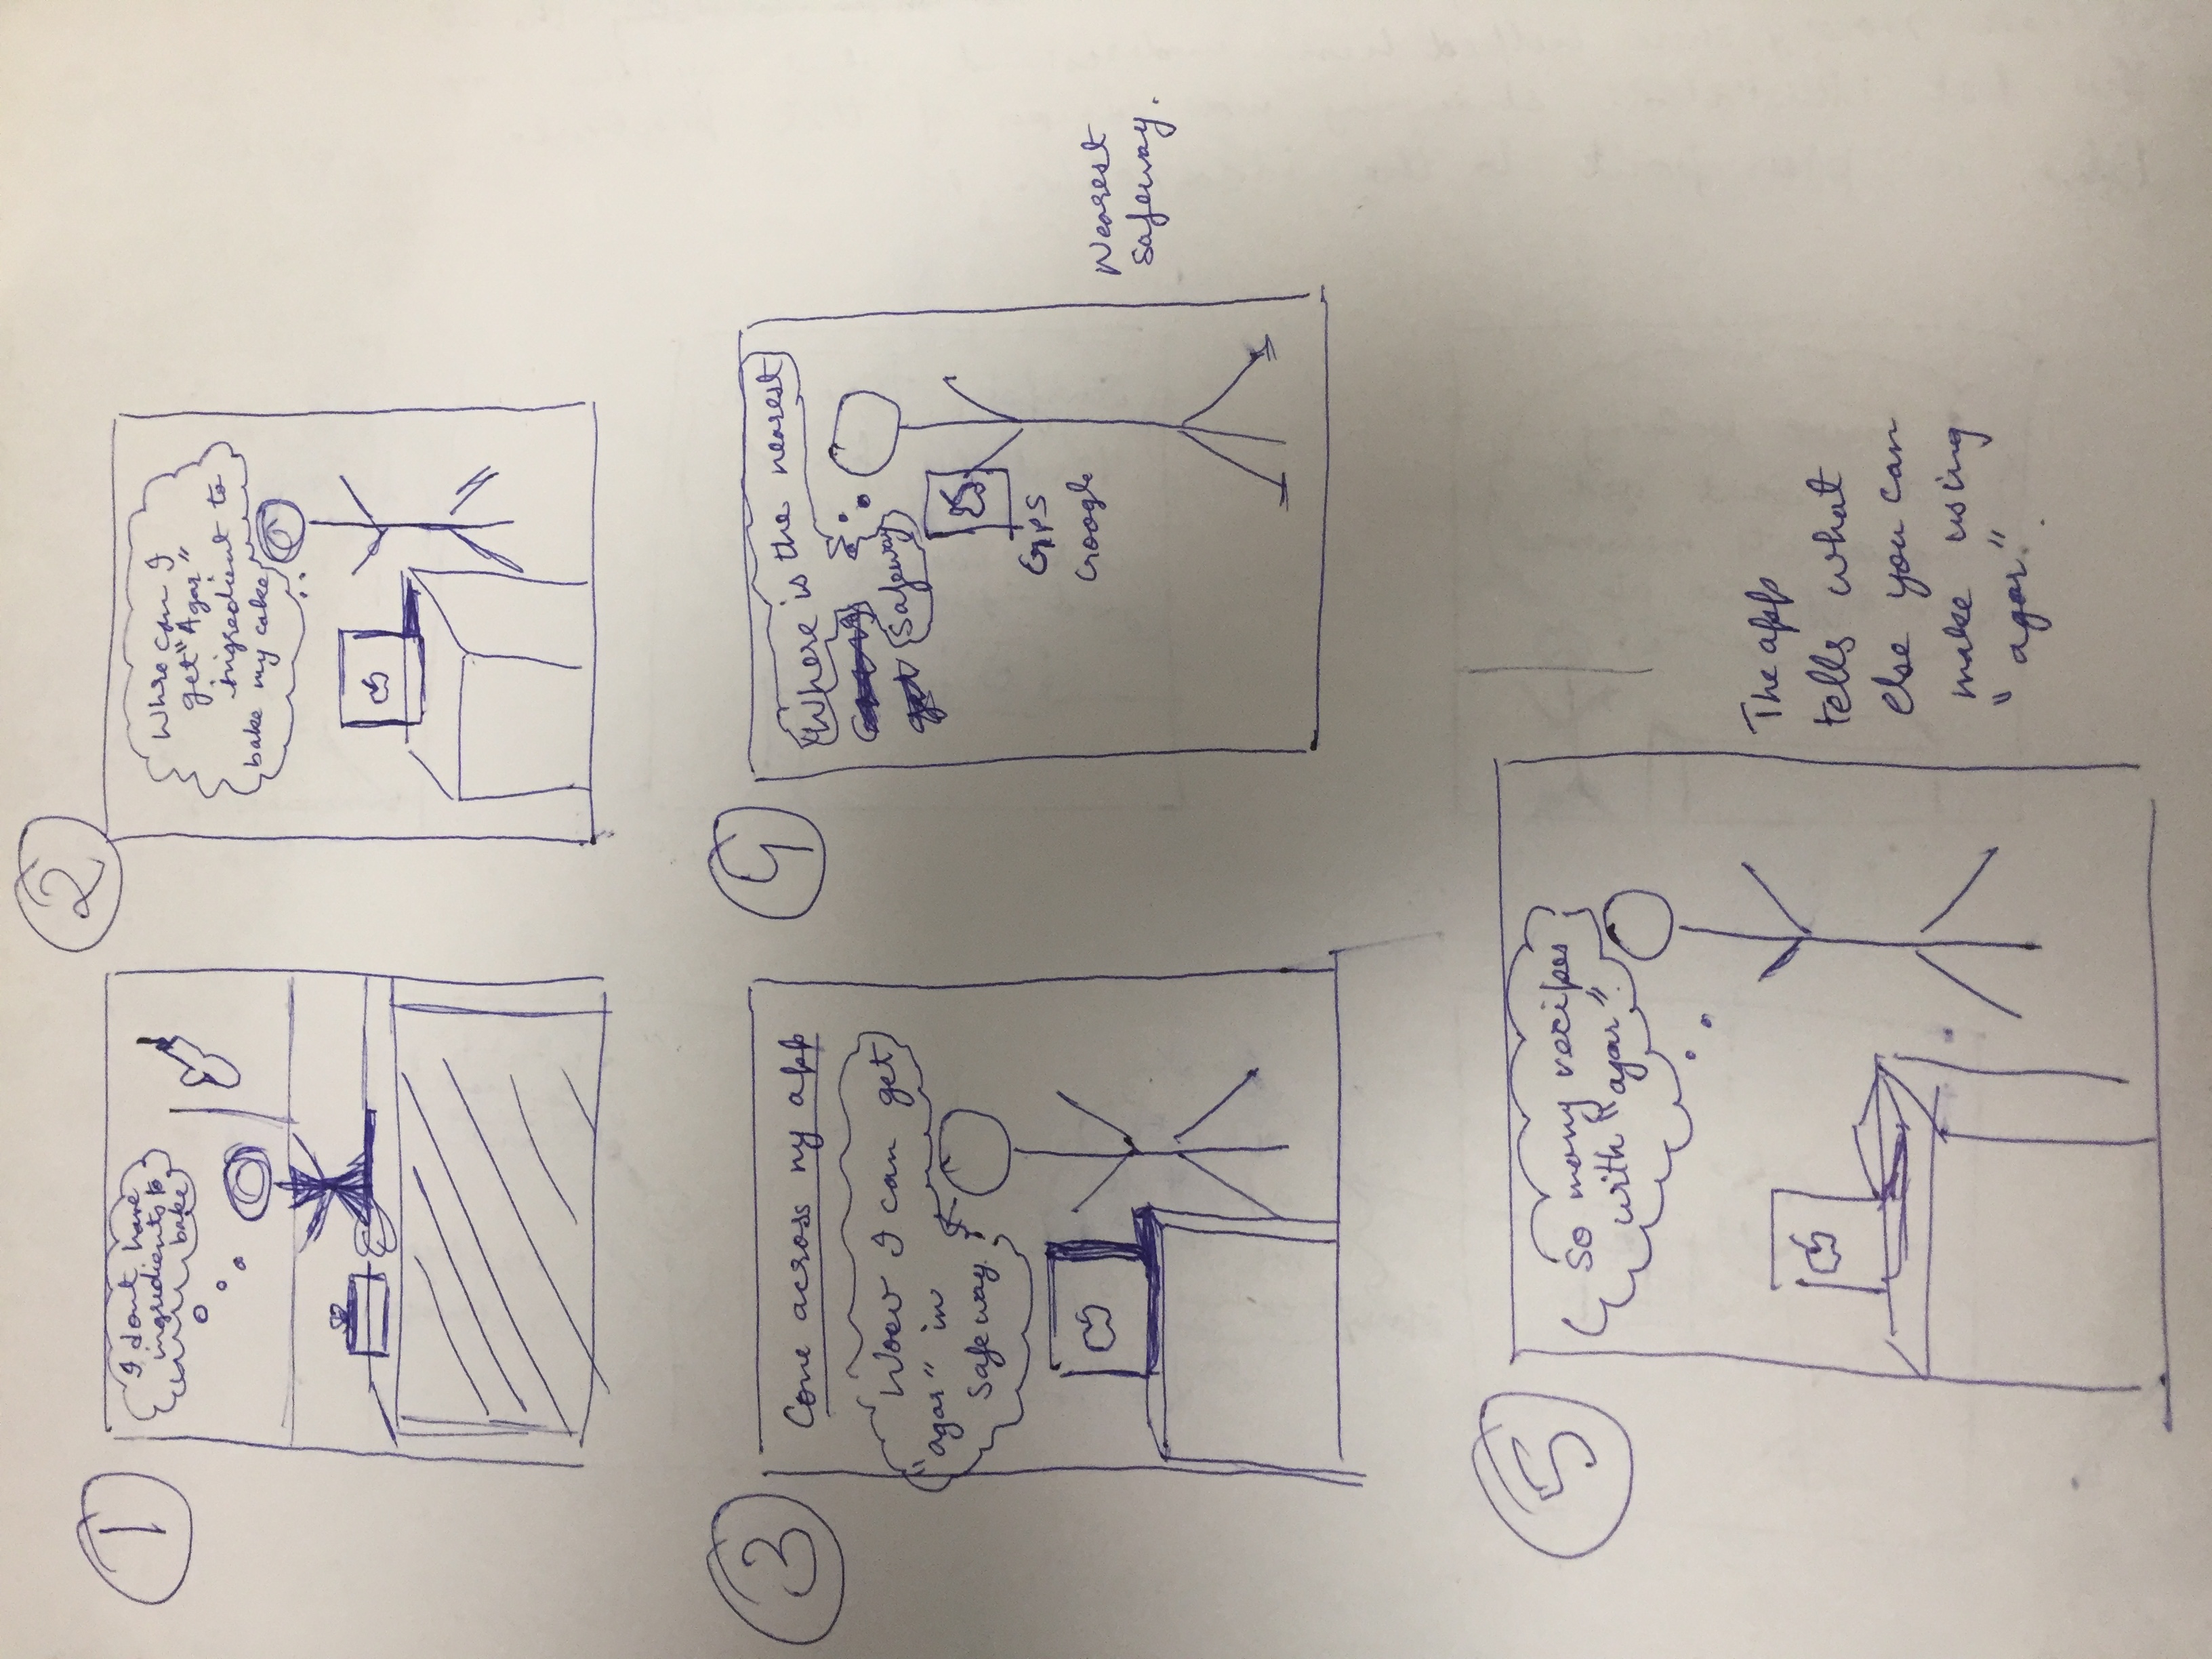 1
I dont have
ingredients to
bake
2
Where can I
get "Agar"
ingredient to
bake my cake
3
Come across my app
"Wow I can get
"agar" in
Safeway.
4
"Where is the nearest
Safeway
GPS
Google
Nearest
Safeway.
5
So many recipes
with "agar".
The app
tells what
else you can
make using
"agar".